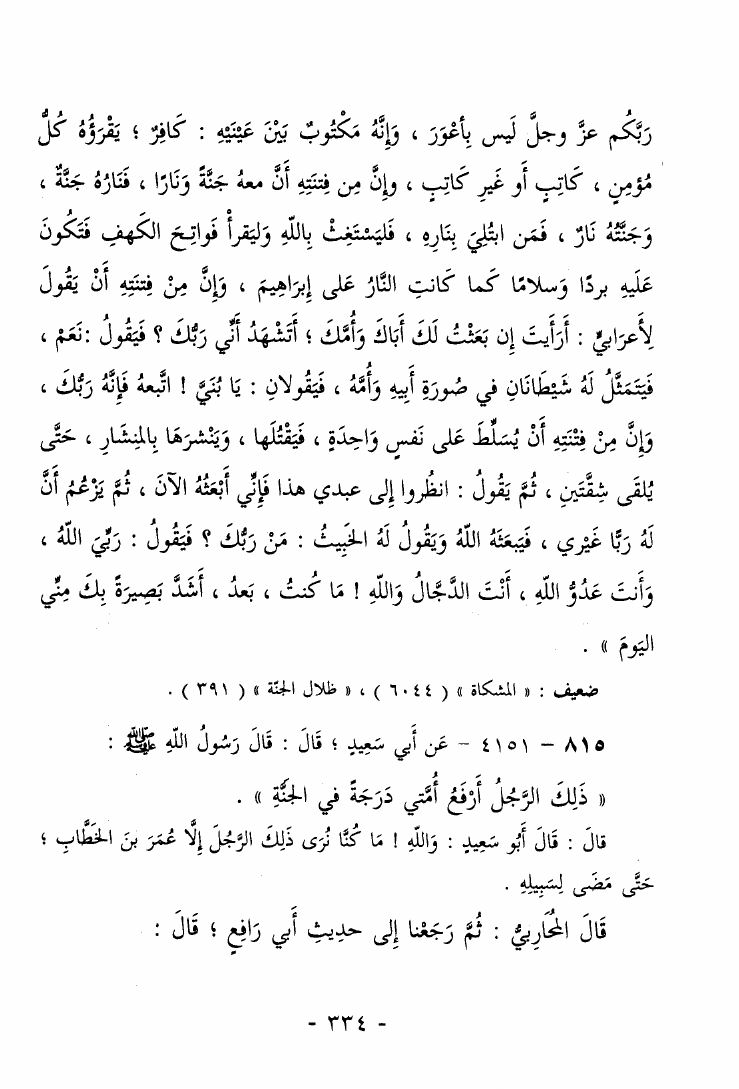 رَبَّكُم عزَّ وجلَّ لَيس بِأَعْوَرَ ، وَإِنَّهُ مَكْتُوبٌ بَيْنَ عَيْنَيْهِ : كَافِرٌ ؛ يَقْرَؤُهُ كُلُّ
مُؤمِنٍ ، كَاتِبٍ أَو غَيرِ كَاتِبٍ ، وإِنَّ مِن فِتنَتِهِ أَنَّ معهُ جَنَّةً وَنَارًا ، فَنَارُهُ جَنَّةٌ ،
وَجَنَّتُهُ نَارٌ ، فَمَن ابتُلِيَ بِنَارِهِ ، فَليَسْتَغِثْ بِاللّهِ وَليَقرأْ فَواتِحَ الكَهفِ فَتَكُونَ
عَلَيهِ بردًا وَسلامًا كَما كَانتِ النَّارُ عَلى إِبرَاهِيمَ ، وَإِنَّ مِنْ فِتنَتِهِ أَنْ يَقُولَ
لِأَعرَابيٍّ : أَرَأَيتَ إِن بَعَثْتُ لَكَ أَبَاكَ وَأُمَّكَ ؛ أَتَشْهَدُ أَنِّي رَبُّكَ ؟ فَيَقُولُ :نَعَمْ ،
فَيَتَمَثَّلُ لَهُ شَيْطَانَانِ في صُورَةِ أَبِيهِ وَأُمَّهُ ، فَيَقُولانِ : يَا بُنَيَّ ! اتَّبعهُ فَإِنَّهُ رَبُّكَ ،
وَإِنَّ مِنْ فِتْنَتِهِ أَنْ يُسَلِّطَ عَلى نَفسٍ وَاحِدَةٍ ، فَيَقْتُلَها ، وَيَنْشرَهَا بِالمِنشَارِ ، حَتَّى
يُلقَى شِقَّتَينِ ، ثُمَّ يَقُولُ : انظُروا إِلى عبدي هذا فَإِنِّي أَبْعَثُهُ الآنَ ، ثُمَّ يَزْعُمُ أَنَّ
لَهُ رَبًّا غَيْري ، فَيَبعَثَهُ اللّهُ وَيَقُولُ لَهُ الخَبِيثُ : مَنْ رَبُّكَ ؟ فَيَقُولُ : رَبِّيَ اللّهُ ،
وَأَنتَ عَدُوُّ اللّهِ ، أَنْتَ الدَّجَّالُ وَاللّهِ ! مَا كُنتُ ، بَعدُ ، أَشَدَّ بَصِيرَةً بِكَ مِنِّي
اليَومَ » .
ضعيف : « المشكاة » ( ٦٠٤٤ ) ، « ظلال الجنّة » ( ٣٩١ ) .
٨١٥ – ٤١٥١ – عَن أَبي سَعِيدٍ ؛ قَالَ : قَالَ رَسُولُ اللّهِ ﷺ :
« ذَلِكَ الرَّجُلُ أَرْفَعُ أُمَّتي دَرَجَةً في الجَنَّةِ » .
قالَ : قَالَ أَبُو سَعِيدٍ : وَاللّهِ ! مَا كُنَّا نُرَى ذَلِكَ الرَّجُلَ إِلَّا عُمَرَ بنَ الخَطَّابِ ؛
حَتَّى مَضَى لِسَبِيلِهِ .
قَالَ المُحَارِبيُّ : ثُمَّ رَجَعْنا إِلى حدِيثِ أَبي رَافِعٍ ؛ قَالَ :
- ٣٣٤ -